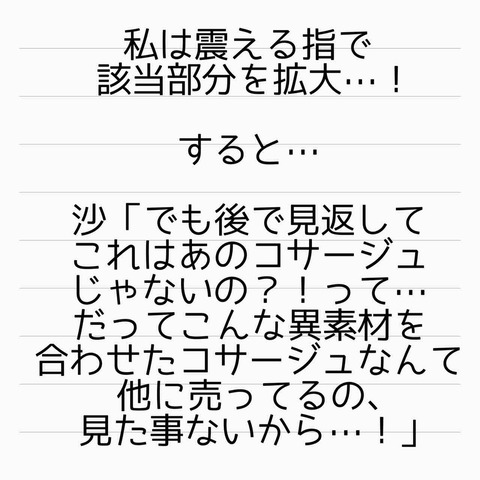 私は震える指で
該当部分を拡大…！
すると…
沙「でも後で見返して
これはあのコサージュ
じゃないの？！って…
だってこんな異素材を
合わせたコサージュなんて
他に売ってるの、
見た事ないから…！」